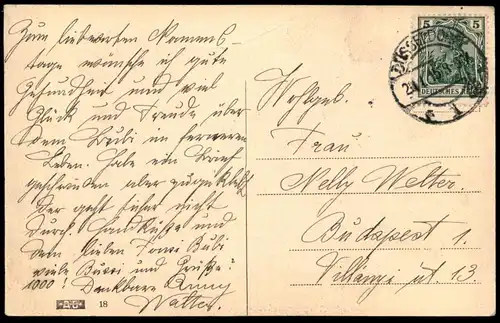 Zum liebwerten Namens-
tage wünsche ich gute
Gesundheit und viel
Glück und Freude über
dem Bubi im ferneren
Leben. Habe ein Brief
geschrieben aber zugeklebt
der geht sicher nicht
durch. Handküsse und
dem lieben Bubi
viele Bussi und Grüße:
1000! Dankbare
Walter.
A·G 18
Wohlgeb.
Frau
Nelly Welter.
Budapest 1.
Villányi út 13
5 5
DEUTSCHES REICH